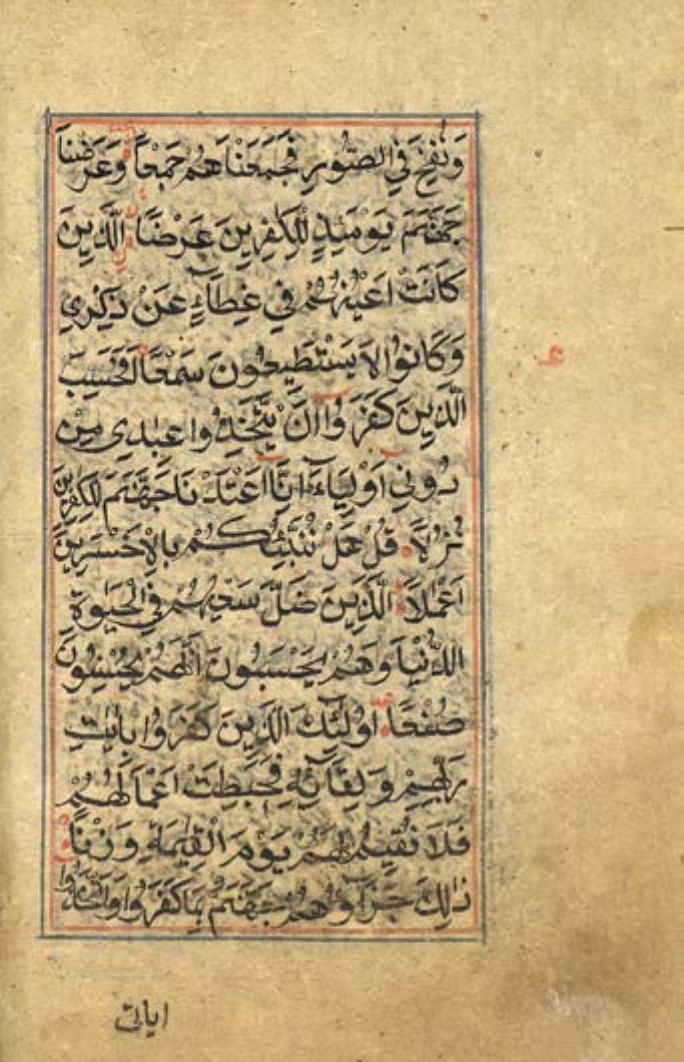 وَنُفِخَ فِي الصُّورِ فَجَمَعْنَاهُمْ جَمْعًا وَعَرَضْنَا
جَهَنَّمَ يَوْمَئِذٍ لِلْكٰفِرِينَ عَرْضًا الَّذِينَ
كَانَتْ اَعْيُنُهُمْ فِي غِطَآءٍ عَنْ ذِكْرِي
وَكَانُوا لَا يَسْتَطِيعُونَ سَمْعًا اَفَحَسِبَ
الَّذِينَ كَفَرُوا اَنْ يَتَّخِذُوا عِبَادِي مِنْ
دُونِي اَوْلِيَآءَ اِنَّا اَعْتَدْنَا جَهَنَّمَ لِلْكٰفِرِينَ
نُزُلًا قُلْ هَلْ نُنَبِّئُكُمْ بِالْاَخْسَرِينَ
اَعْمٰلًا الَّذِينَ ضَلَّ سَعْيُهُمْ فِي الْحَيٰوةِ
الدُّنْيَا وَهُمْ يَحْسَبُونَ اَنَّهُمْ يُحْسِنُونَ
صُنْعًا اُولٰئِكَ الَّذِينَ كَفَرُوا بِاٰيٰتِ
رَبِّهِمْ وَلِقَآئِهِ فَحَبِطَتْ اَعْمَالُهُمْ
فَلَا نُقِيمُ لَهُمْ يَوْمَ الْقِيٰمَةِ وَزْنًا
ذٰلِكَ جَزَآؤُهُمْ جَهَنَّمُ بِمَا كَفَرُوا وَاتَّخَذُوا
ع
اياتى